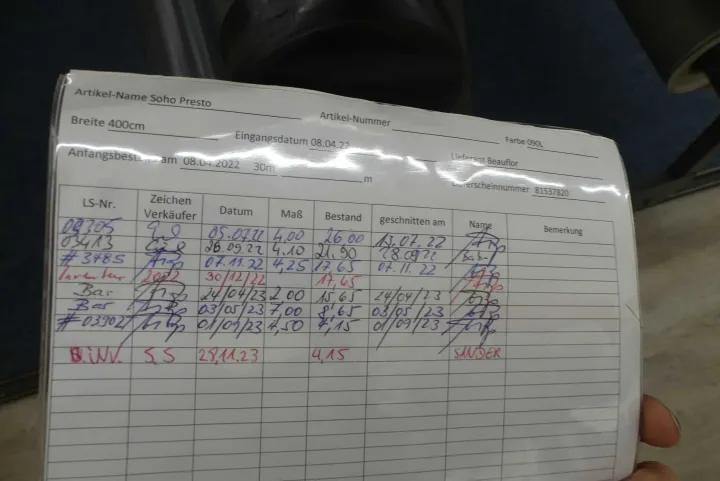 Artikel-Name Soho Presto
Artikel-Nummer
Farbe 090L
Breite 400cm
Eingangsdatum 08.04.22
Lieferant Beauflor
Anfangsbestand am 08.04.2022 30m m
Lieferscheinnummer 81537820
LS-Nr. Zeichen Verkäufer Datum Maß Bestand geschnitten am Name Bemerkung
09305 05.07.22 4,00 26.00 13.07.22
03413 26.09.22 4.10 21.90 28.09.22
# 3485 07.11.22 4,25 17,65 07.11.22
Inventur 2022 30/12/22 17,65
Bar 24/04/23 2,00 15,65 24/04/23
Bar 03/05/23 7,00 8,65 03/05/23
# 03902 01/09/23 4,50 4,15 01/09/23
B.INV. S.S 28.11.23 4,15 SANDER